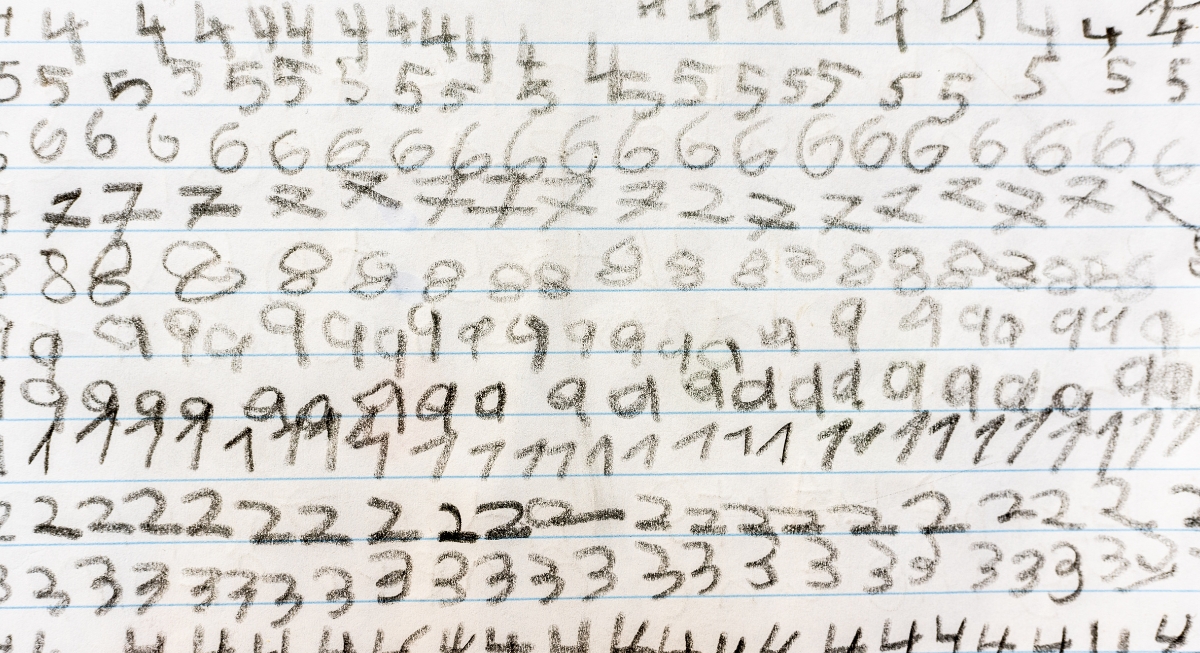 4 4 4 4 4 4 4 4 4 4 4 4 4 4 4 4 4 4
5 5 5 5 5 5 5 5 5 5 5 5 5 5 5 5 5 5 5 5
6 6 6 6 6 6 6 6 6 6 6 6 6 6 6 6 6 6 6
7 7 7 7 7 7 7 7 7 7 7 7 7 7 7 7 7 7
8 8 8 8 8 8 8 8 8 8 8 8 8 8 8 8 8 8 8 8
9 9 9 9 9 9 9 9 9 9 9 9 9 9 9 9 9 9 9 9 9 9 9
9 9 9 9 9 9 9 9 9 9 9 9 9 9 9 9 9 9 9 9 9 9
1 1 1 1 1 1 1 1 1 1 1 1 1 1 1 1 1 1 1 1 1 1 1
2 2 2 2 2 2 2 2 2 2 2 2 2 2 2 2 2 2 2 2
3 3 3 3 3 3 3 3 3 3 3 3 3 3 3 3 3 3 3 3 3
4 4 4 4 4 4 4 4 4 4 4 4 4 4 4 4